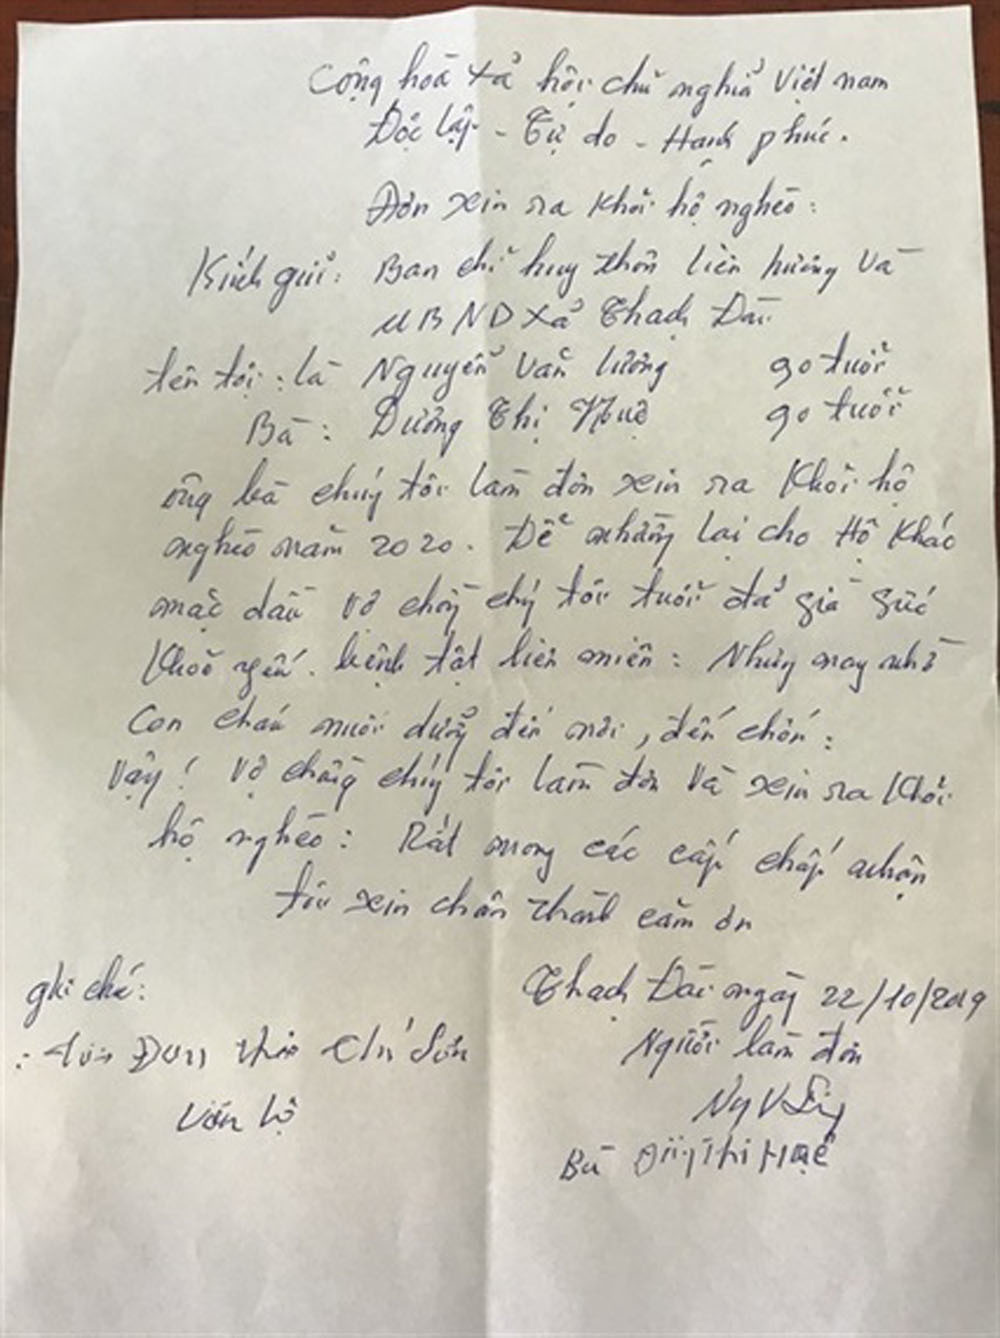 Cộng hoà xả hội chủ nghiả Việt nam
Độc lập - Tự do - Hạnh phúc.
Đơn xin ra khỏi hộ nghèo:
Kính gửi: Ban chỉ huy thôn liên hương và
UBND xả Thạch Đài
tên tôi: là Nguyễn Văn lương 90 tuổi
Bà: Dương Thị Huệ 90 tuổi
ông bà chúng tôi làm đơn xin ra khỏi hộ
nghèo năm 2020. Để nhường lại cho Hộ khác
mặc dầu vợ chồng chúng tôi tuổi đả già sức
khoẻ yếu. bệnh tật liên miên: Nhưng may nhờ
con cháu nuôi dưỡng đến nơi, đến chốn:
Vậy! vợ chồng chúng tôi làm đơn và xin ra khỏi
hộ nghèo: Rất mong các cấp chấp nhận
tôi xin chân thành cảm ơn
ghi chú: Thạch Đài ngày 22/10/2019
Người làm đơn
Bà Thị Huệ